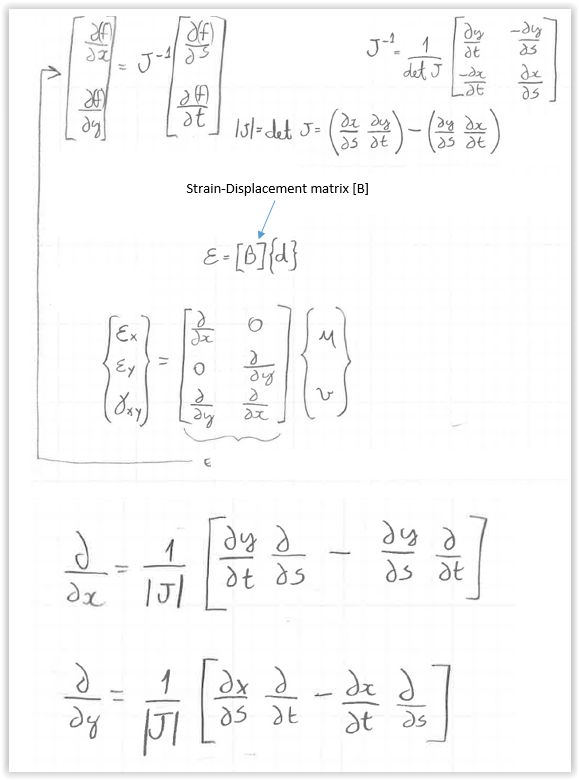 [∂(f)/∂x ; ∂(f)/∂y] = J⁻¹ [∂(f)/∂s ; ∂(f)/∂t]
J⁻¹ = 1/det J [∂y/∂t -∂y/∂s ; -∂x/∂t ∂x/∂s]
|J| = det J = (∂x/∂s ∂y/∂t) - (∂y/∂s ∂x/∂t)
Strain-Displacement matrix [B]
ε = [B]{d}
{εx ; εy ; γxy} = [∂/∂x 0 ; 0 ∂/∂y ; ∂/∂y ∂/∂x] {u ; v}
ε
∂/∂x = 1/|J| [∂y/∂t ∂/∂s - ∂y/∂s ∂/∂t]
∂/∂y = 1/|J| [∂x/∂s ∂/∂t - ∂x/∂t ∂/∂s]